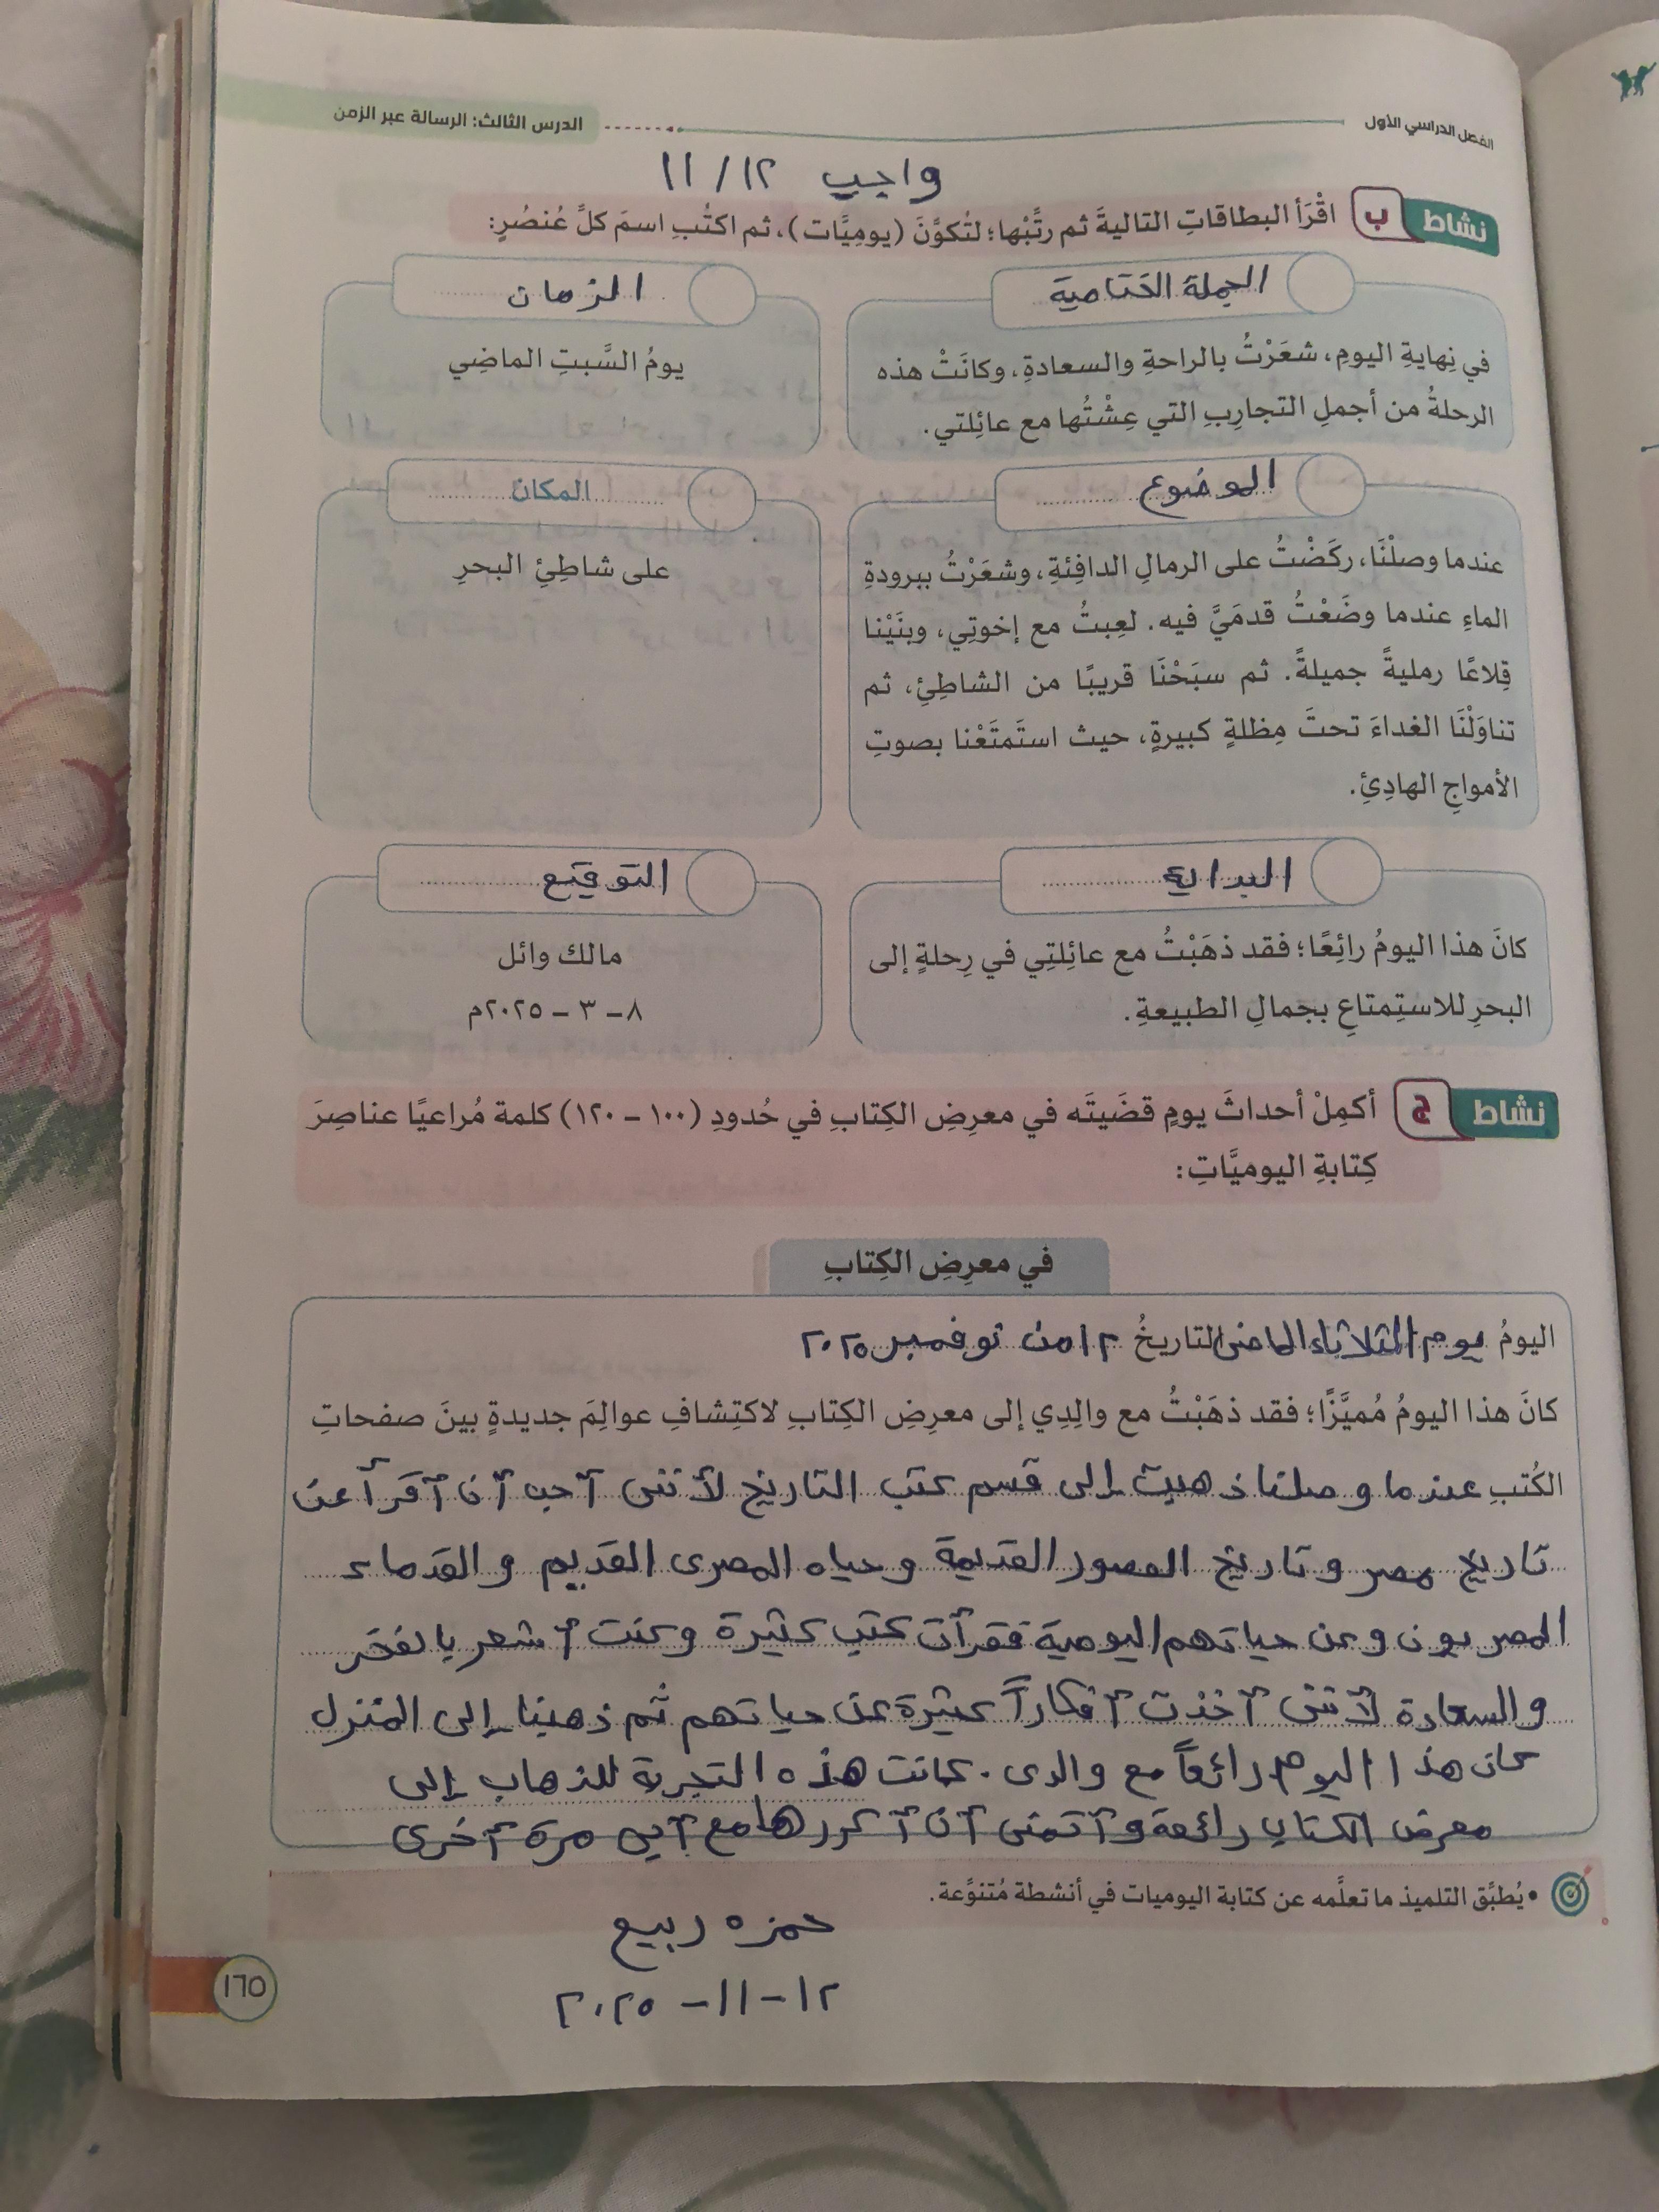 الفصل الدراسي الأول
الدرس الثالث: الرسالة عبر الزمن
واجب ١٢/ ١١
نشاط ب اقْرَأ البطاقاتِ التاليةَ ثم رتِّبْها؛ لتُكوِّنَ (يوميَّات)، ثم اكتُبِ اسمَ كلِّ عُنصُرٍ:
الجملة الختامية
في نِهايةِ اليومِ، شعَرْتُ بالراحةِ والسعادةِ، وكانَتْ هذه
الرحلةُ من أجملِ التجارِبِ التي عِشْتُها مع عائِلتي.
الزمان
يومُ السَّبتِ الماضِي
الموضوع
عندما وصلْنَا، ركَضْتُ على الرمالِ الدافِئةِ، وشعَرْتُ ببرودةِ
الماءِ عندما وضَعْتُ قدمَيَّ فيه. لعِبتُ مع إخوتِي، وبنَيْنا
قِلاعًا رمليةً جميلةً. ثم سبَحْنَا قريبًا من الشاطِئِ، ثم
تناوَلْنَا الغداءَ تحتَ مِظلةٍ كبيرةٍ، حيث استَمتَعْنا بصوتِ
الأمواجِ الهادِئِ.
المكان
على شاطِئِ البحرِ
البداية
كانَ هذا اليومُ رائِعًا؛ فقد ذهَبْتُ مع عائِلتِي في رِحلةٍ إلى
البحرِ للاستِمتاعِ بجمالِ الطبيعةِ.
التوقيع
مالك وائل
٨ – ٣ – ٢٠٢٥م
نشاط ج أكمِلْ أحداثَ يومٍ قضَيتَه في معرِضِ الكِتابِ في حُدودِ (١٠٠ – ١٢٠) كلمة مُراعيًا عناصِرَ
كِتابةِ اليوميَّاتِ:
في معرِضِ الكِتابِ
اليومُ يوم الثلاثاء الماضى التاريخُ ١٢ من نوفمبر ٢٠٢٥
كانَ هذا اليومُ مُميَّزًا؛ فقد ذهَبْتُ مع والِدِي إلى معرِضِ الكِتابِ لاكتِشافِ عوالِمَ جديدةٍ بينَ صفحاتِ
الكُتبِ عندما وصلنا ذهبت إلى قسم كتب التاريخ لأننى أحب أن أقرأ عن
تاريخ مصر وتاريخ العصور القديمة وحياه المصرى القديم والقدماء
المصريون وعن حياتهم اليومية فقرأت كتب كثيرة وكنت أشعر بالفخر
والسعادة لأننى أخذت أفكاراً كثيرة عن حياتهم ثم ذهبنا إلى المنزل
كان هذا اليوم رائعاً مع والدى. كانت هذه التجربة للذهاب إلى
معرض الكتاب رائعة وأتمنى أن أكررها مع أبى مرة أخرى
• يُطبِّق التلميذ ما تعلَّمه عن كتابة اليوميات في أنشطة مُتنوِّعة.
حمزه ربيع
١٢-١١- ٢٠٢٥
١٦٥